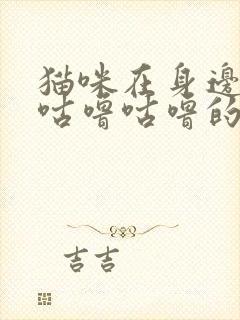 猫咪在身邊
咕嚕咕嚕的
吉吉